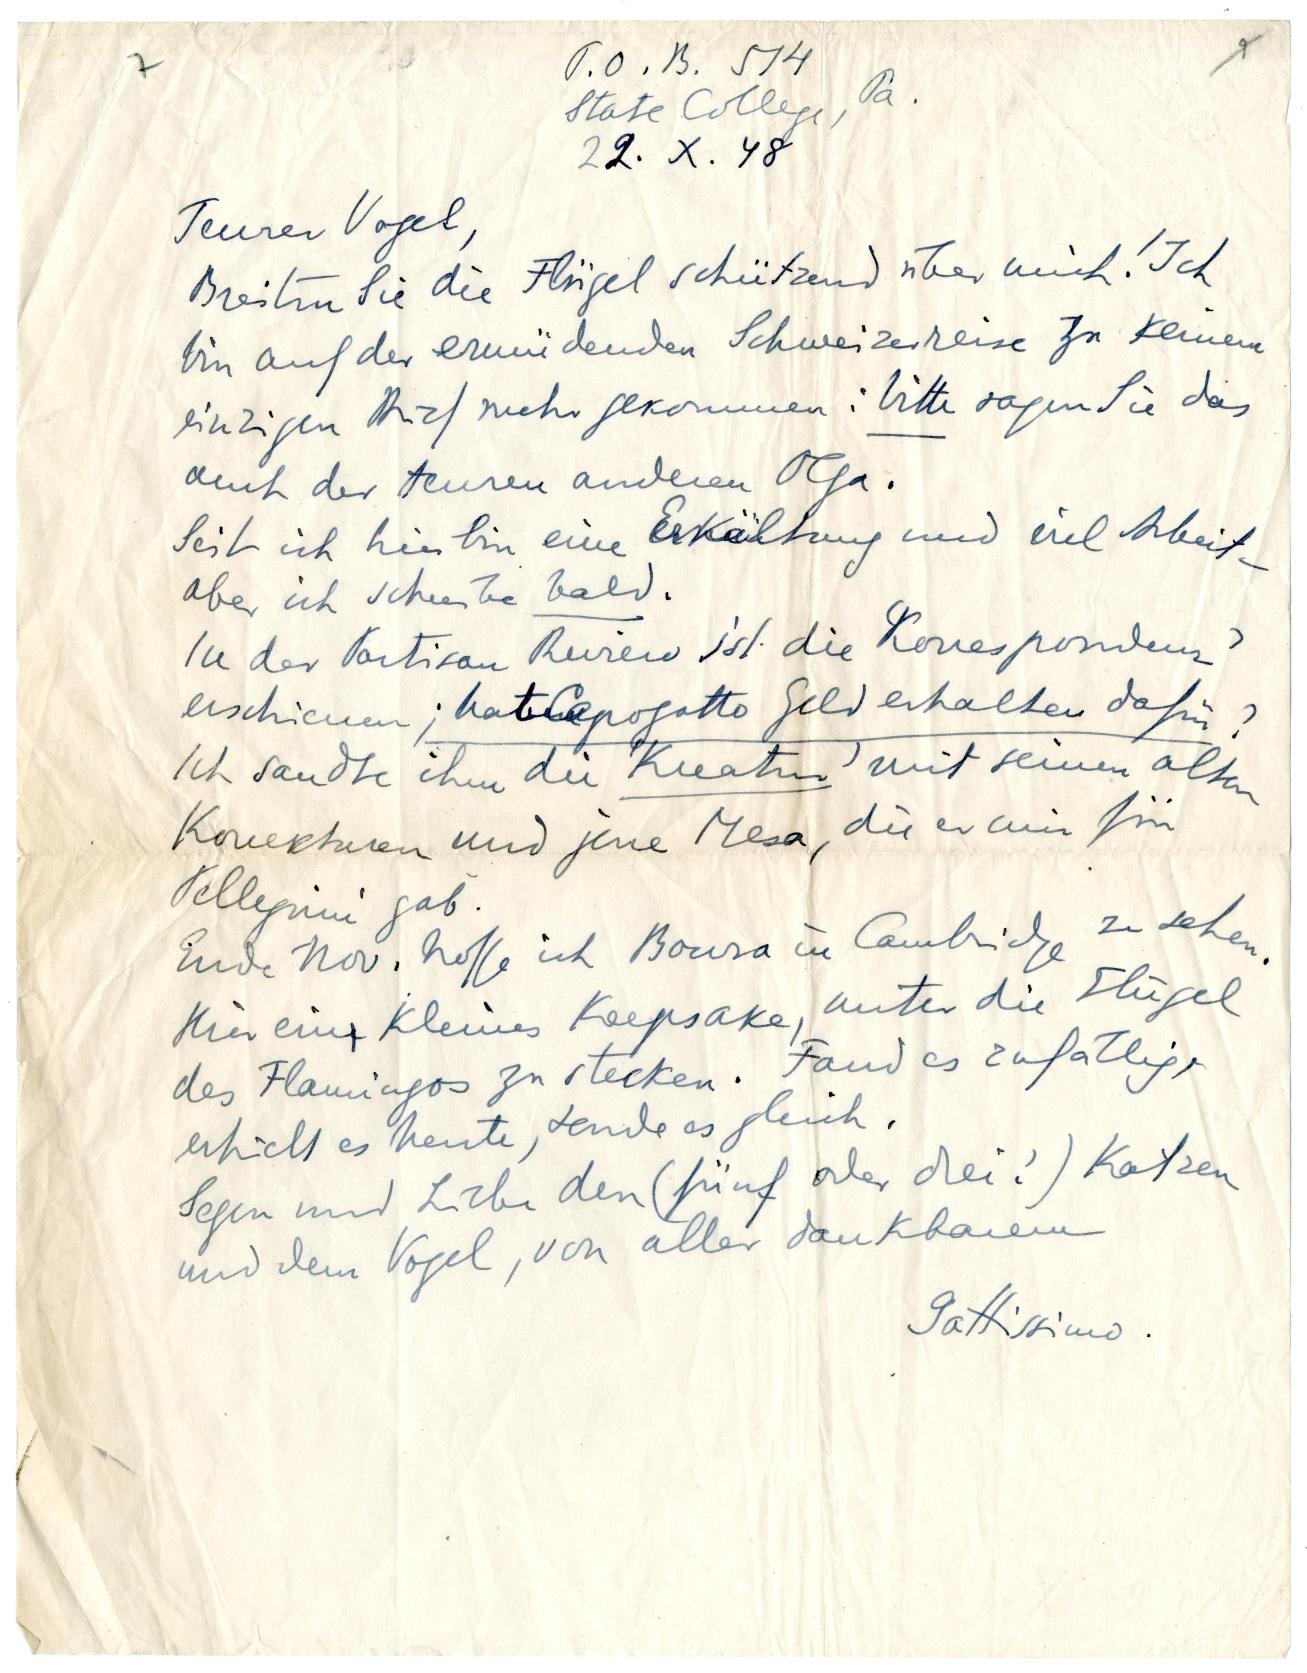 P.O.B. 514
State College, Pa.
22. X. 48
Teurer Vogel,
Breiten Sie die Flügel schützend über mich! Ich
bin auf der ermüdenden Schweizerreise zu keinem
einzigen Brief mehr gekommen: bitte sagen Sie das
auch der teuren anderen Olga.
Seit ich hier bin eine Erkältung und viel Arbeit –
aber ich schreibe bald.
In der Partisan Review ist die Korrespondenz
erschienen; hat Capogatto Geld erhalten dafür?
Ich sandte ihm die 'Kreatur' mit seinen alten
Korrekturen und jene Mesa, die er mir für
Pellegrini gab.
Ende Nov. hoffe ich Bowra in Cambridge zu sehen.
Hier ein kleines Keepsake, unter die Flügel
des Flamingos zu stecken. Fand es zufällig,
erhielt es heute, sende es gleich.
Segen und Liebe den (fünf oder drei?) Katzen
und dem Vogel, von aller dankbarem
Gattissimo.